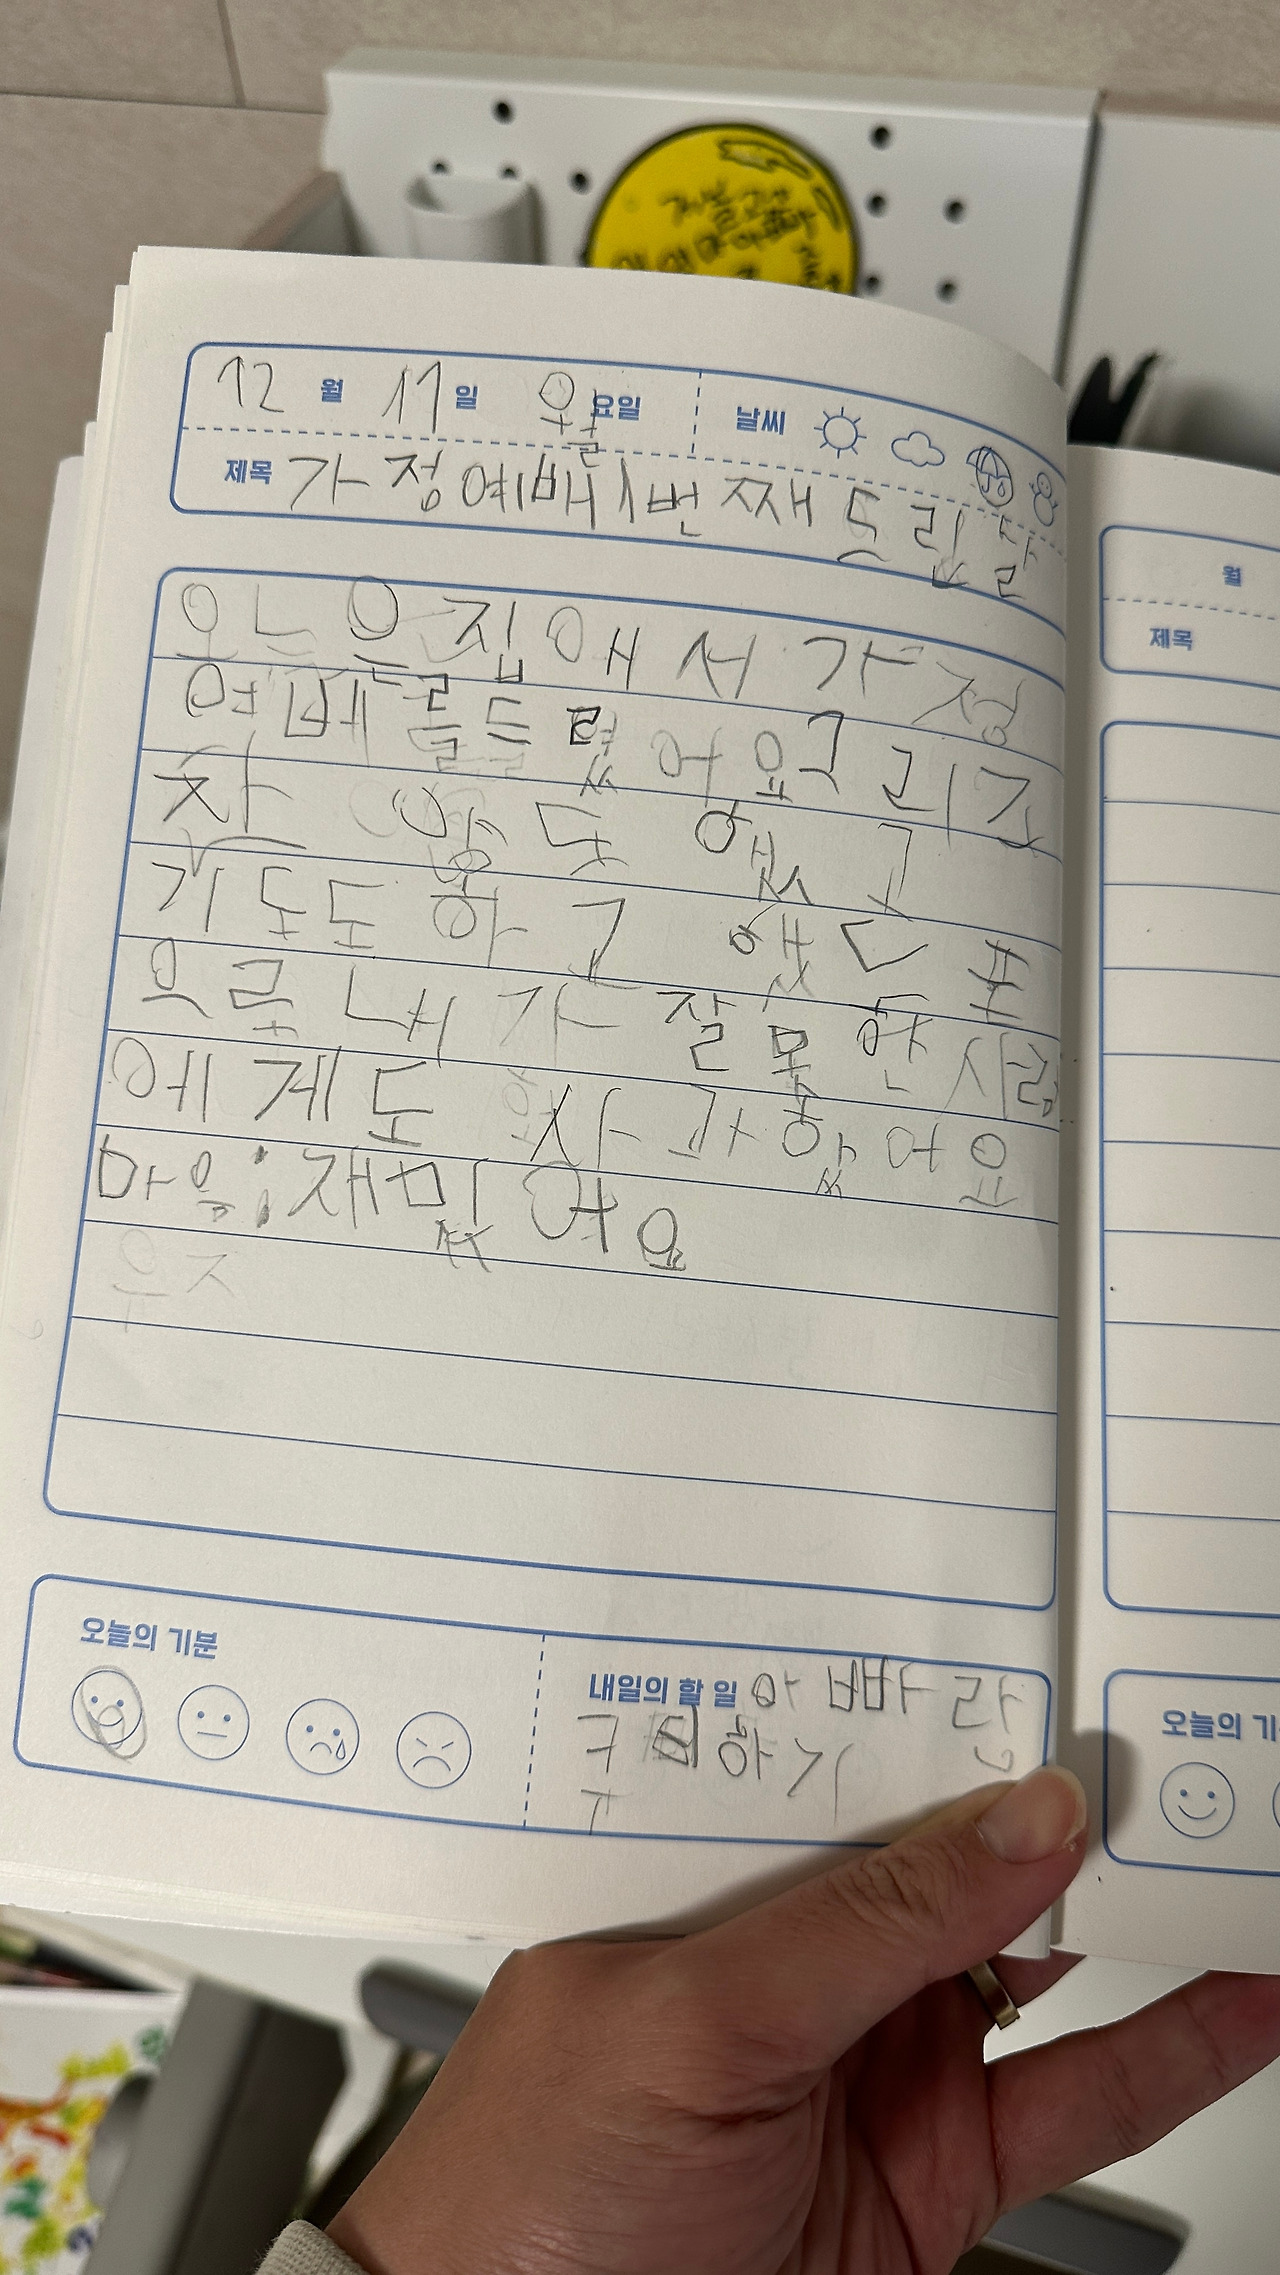 12 월 11 일 월 요일 날씨
제목 가정예배 1번째 드린날
오늘은 집애서 가정
여배를 드렸어요 그리고
찬양도 했고
기도도 하고 했
으로 내가 잘못한 사람
에게도 사과했어요
마음: 재밌어요
오늘의 기분
내일의 할 일 아빠랑
하기
월
제목
오늘의 기